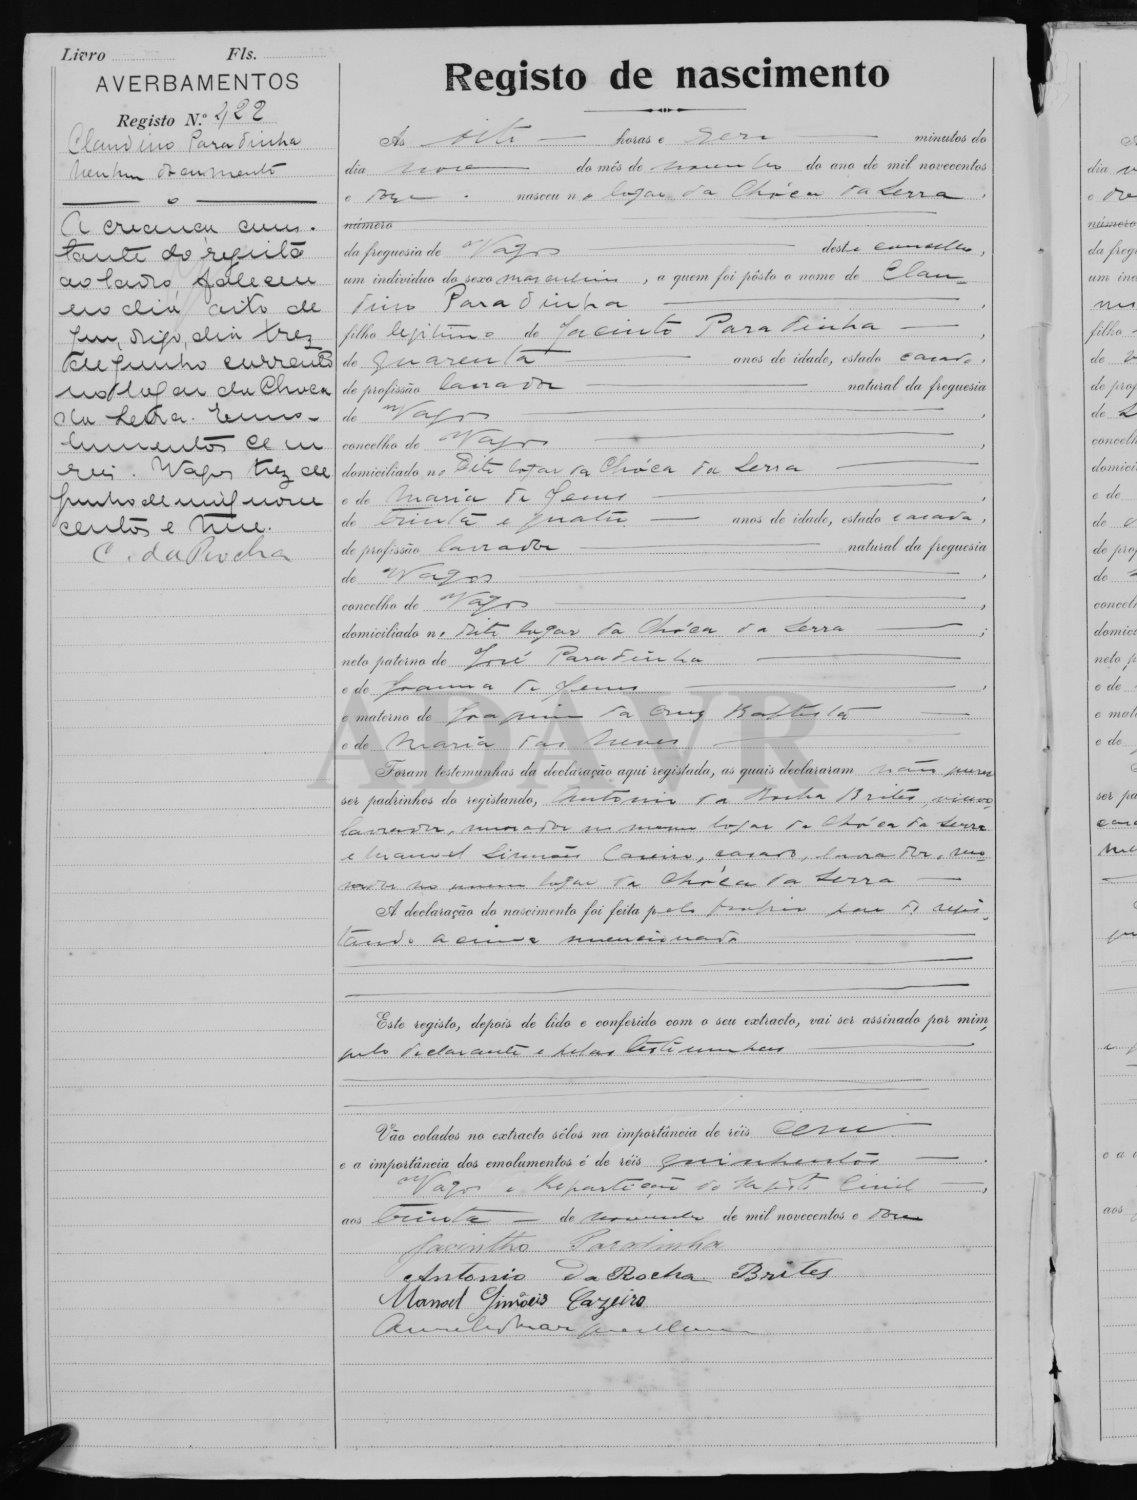 Livro Fls.
AVERBAMENTOS
Registo N.º 422
Claudino Paradinha
Nenhum documento
A creança cons-
tante do registo
ao lado, faleceu
no dia oito de
Jun, digo, dia trez
de Junho corrente
no logar da Choca
da Serra. Emo-
lumentos cem
reis. Vagos trez de
Junho de mil nove
centos e treze.
C. da Rocha
Registo de nascimento
Ás oito horas e zero minutos do
dia nove do mês de novembro do ano de mil novecentos
e doze nasceu no logar da Chóca da Serra,
número
da freguesia de Vagos deste concelho,
um indivíduo do sexo masculino, a quem foi pôsto o nome de Clau-
dino Paradinha,
filho legitimo de Jacinto Paradinha,
de quarenta anos de idade, estado casado,
de profissão lavrador natural da freguesia
de Vagos,
concelho de Vagos,
domiciliado no dito logar da Chóca da Serra
e de Maria de Jesus,
de trinta e quatro anos de idade, estado casada,
de profissão lavrador natural da freguesia
de Vagos,
concelho de Vagos,
domiciliado no dito logar da Chóca da Serra;
neto paterno de José Paradinha
e de Joanna de Jesus,
e materno de Joaquim da Cruz Baptista
e de Maria das Neves
ADAVR
Foram testemunhas da declaração aqui registada, as quais declararam não querer
ser padrinhos do registando, Antonio da Rocha Brites, viuvo,
lavrador, morador no mesmo logar da Chóca da Serra
e Manoel Simões Caseiro, casado, lavrador, mo-
rador no mesmo logar da Chóca da Serra
A declaração do nascimento foi feita pelo proprio pae do regis-
tando acima mencionado
Este registo, depois de lido e conferido com o seu extracto, vai ser assinado por mim,
pelo declarante e pelas testemunhas
Vão colados no extracto sêlos na importância de réis cem
e a importância dos emolumentos é de réis quinhentos.
Vagos e Repartição do Registo Civil,
aos trinta de novembro de mil novecentos e doze
Jacintho Paradinha
Antonio da Rocha Brites
Manoel Simões Cazeiro